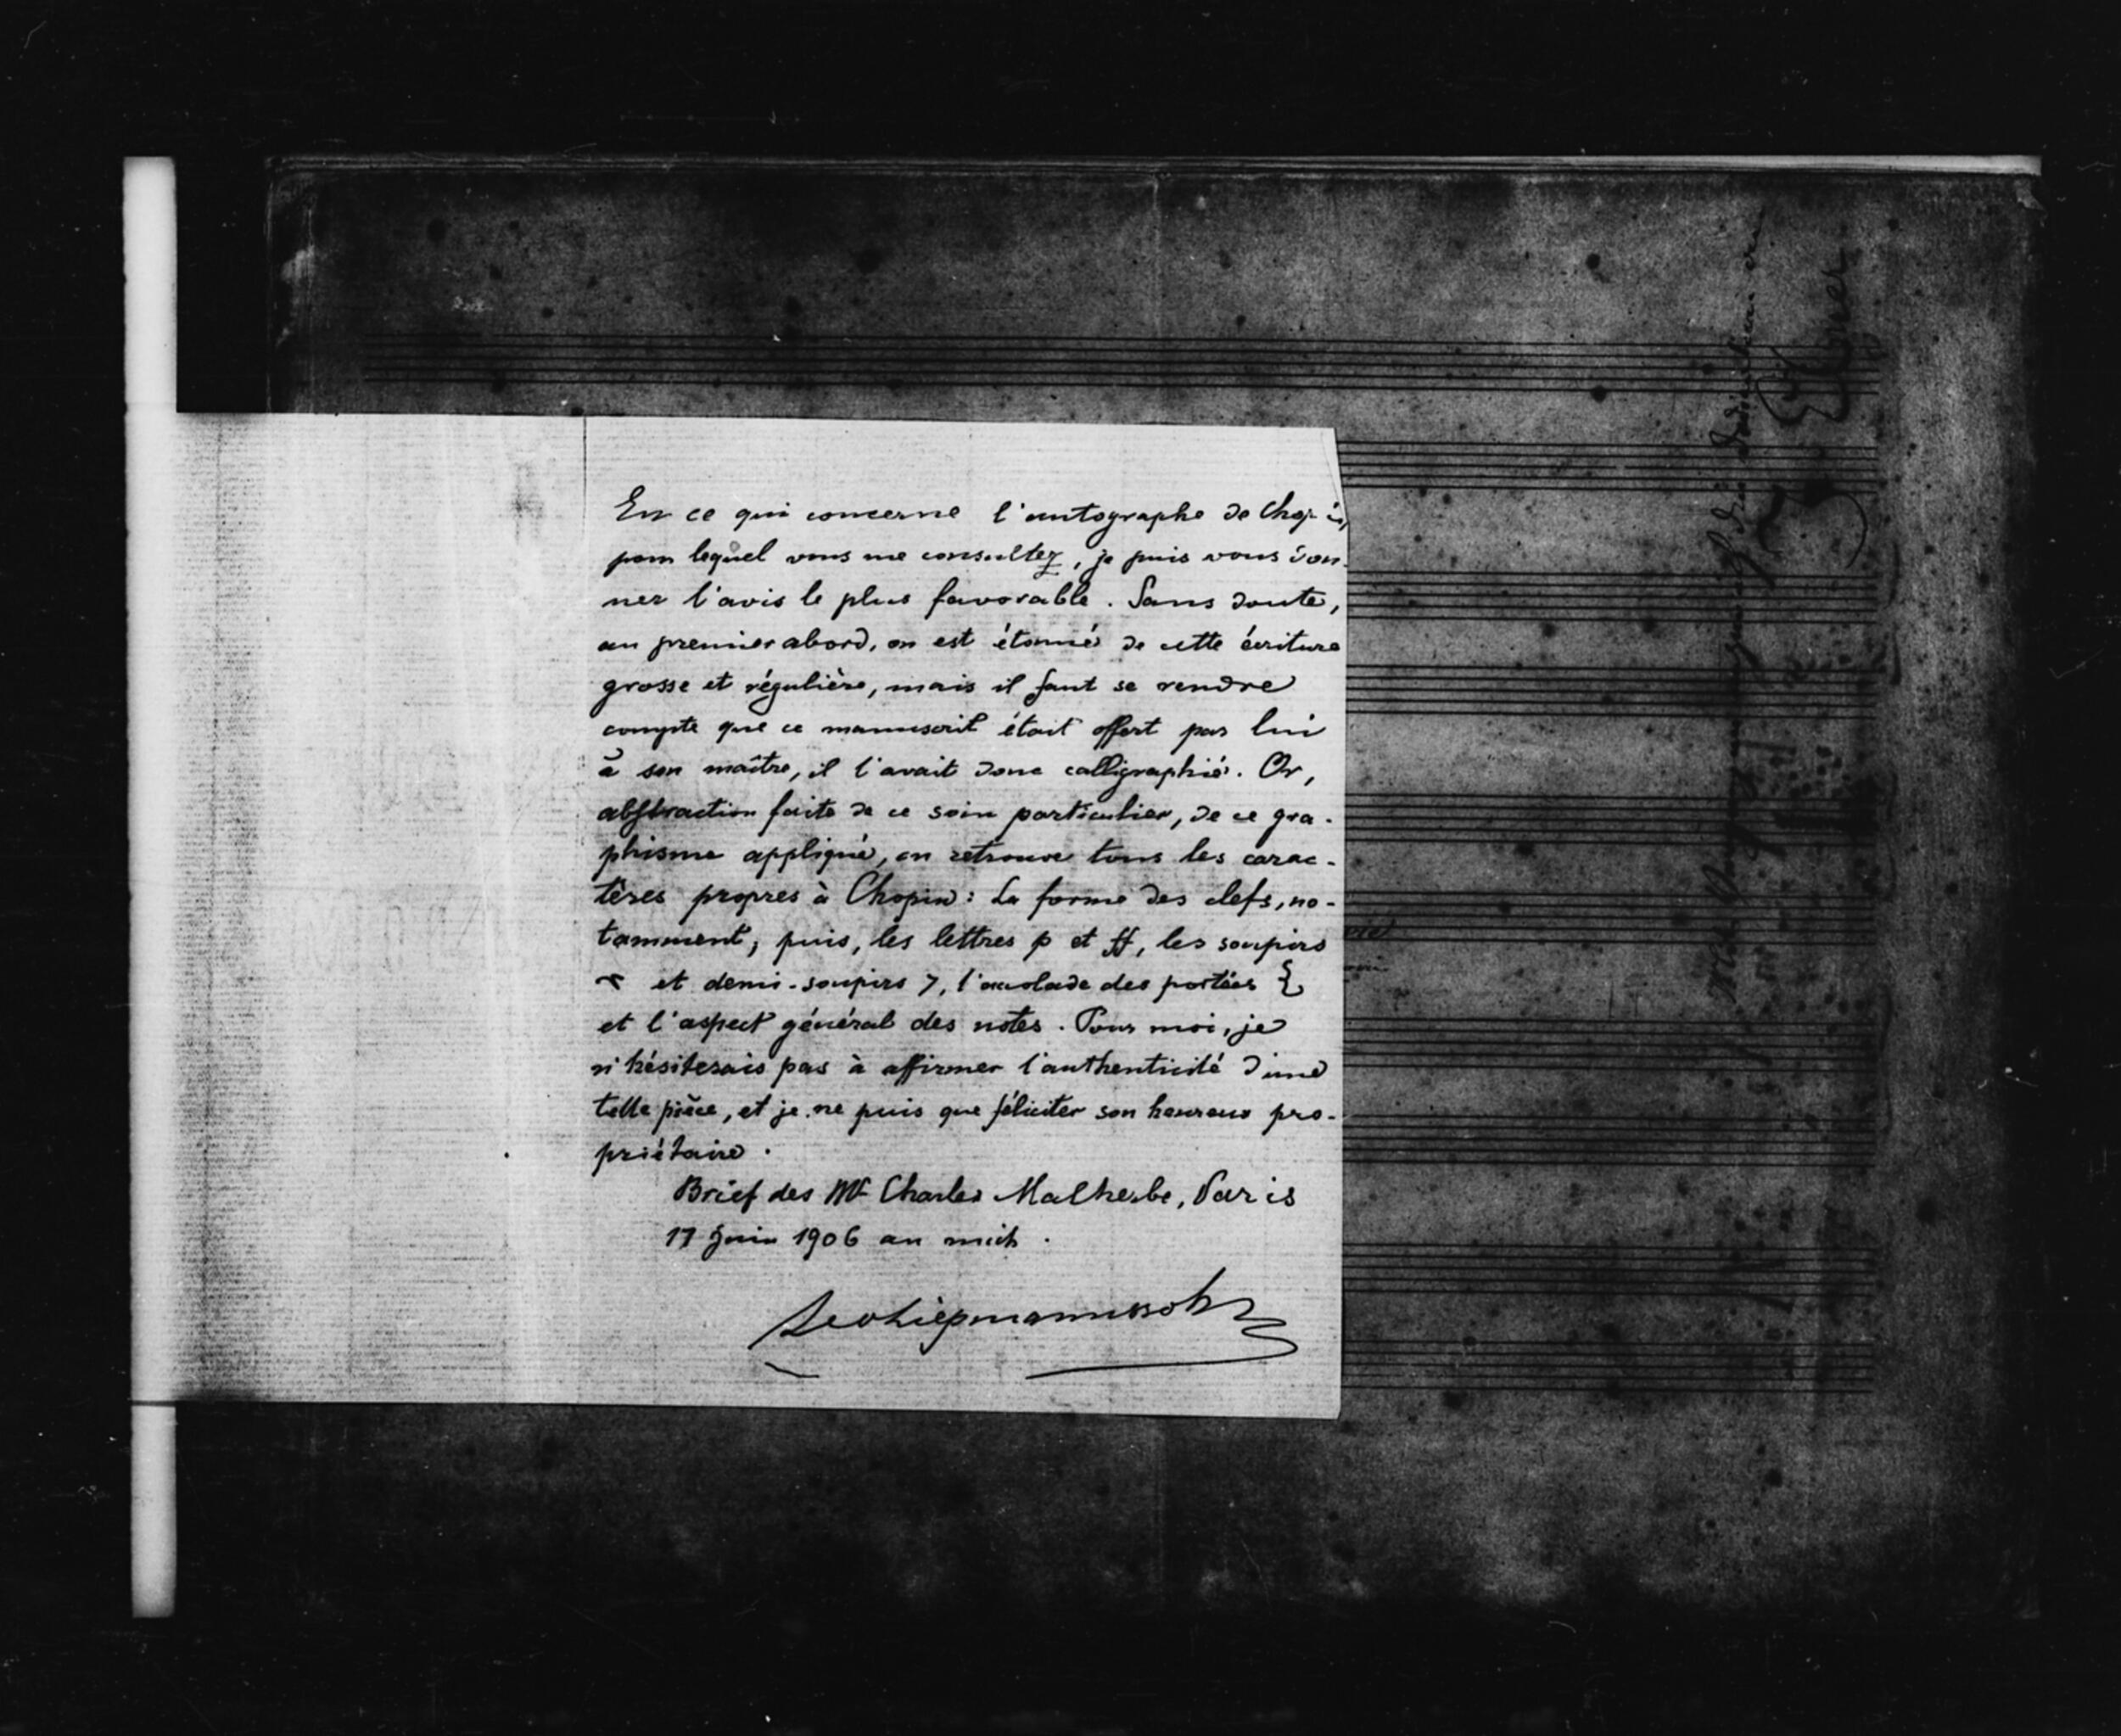 En ce qui concerne l'autographe de Chopin,
pour lequel vous me consultez, je puis vous don-
ner l'avis le plus favorable. Sans doute,
au premier abord, on est étonné de cette écriture
grosse et régulière, mais il faut se rendre
compte que ce manuscrit était offert par lui
à son maître, il l'avait donc calligraphié. Or,
abstraction faite de ce soin particulier, de ce gra-
phisme appliqué, on retrouve tous les carac-
tères propres à Chopin: La forme des clefs, no-
tamment, puis, les lettres p et ff, les soupirs
et demi-soupirs 7, l'accolade des portées {
et l'aspect général des notes. Pour moi, je
n'hésiterais pas à affirmer l'authenticité d'une
telle pièce, et je ne puis que féliciter son heureux pro-
priétaire.
Brief des Mr Charles Malherbe, Paris
17 Juin 1906 an mich.
Leo Liepmannssohn
Elsner